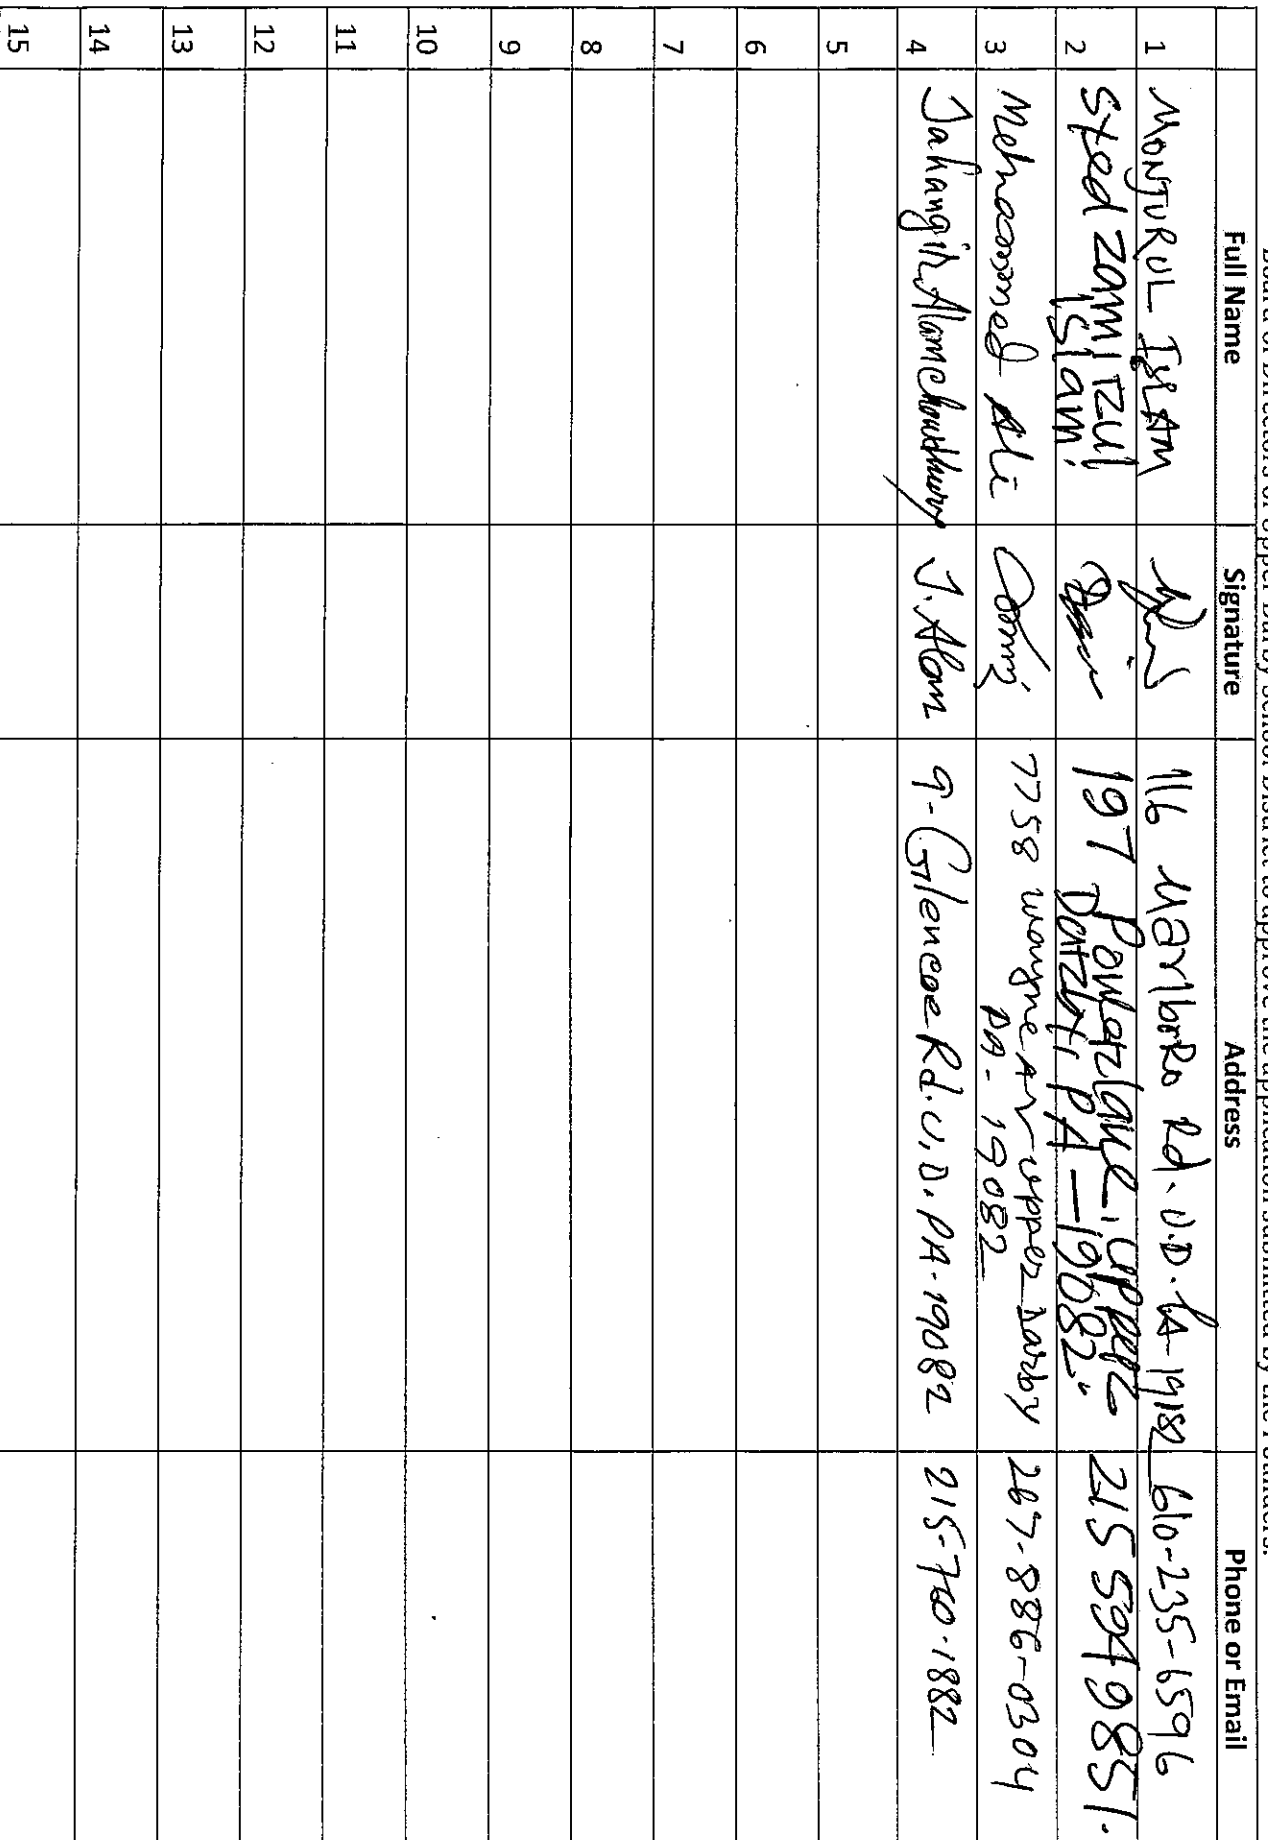 Board of Directors of Upper Darby School District to approve the application submitted by the Founders.
Full Name Signature Address Phone or Email
1 MONJURUL ISLAM 116 Marlboro Rd. U.D. PA-19182 610-235-6596
2 Syed zamirul 197 Powlar lave, upper 215 594 9851.
Islam, Darby, PA-19082.
3 Mehammed Ali 7758 wayne Av upper Darby 267-886-0304
PA-19082
4 Jahangir Alam Chowdhury J. Alam 9-Glencoe Rd. U.D. PA-19082 215-760-1882
5
6
7
8
9
10
11
12
13
14
15